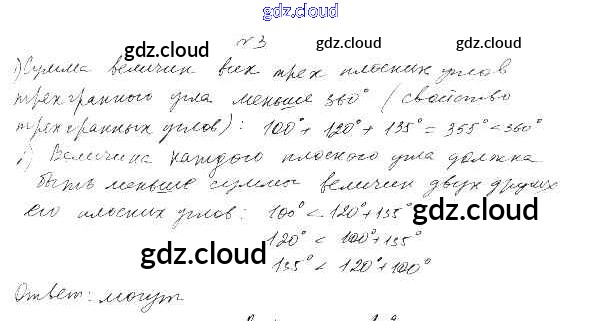 gdz.cloud
№3
gdz.cloud gdz.cloud gdz.cloud
1) Сумма величин всех трех плоских углов
трехгранного угла меньше 360° (свойство
трехгранных углов): 100° + 120° + 135° = 355° < 360°
2) Величина каждого плоского угла должна
быть меньше суммы величин двух других
его плоских углов: 100° < 120° + 135°
gdz.cloud
120° < 100° + 135°
gdz.cloud
135° < 120° + 100°
gdz.cloud
Ответ: могут